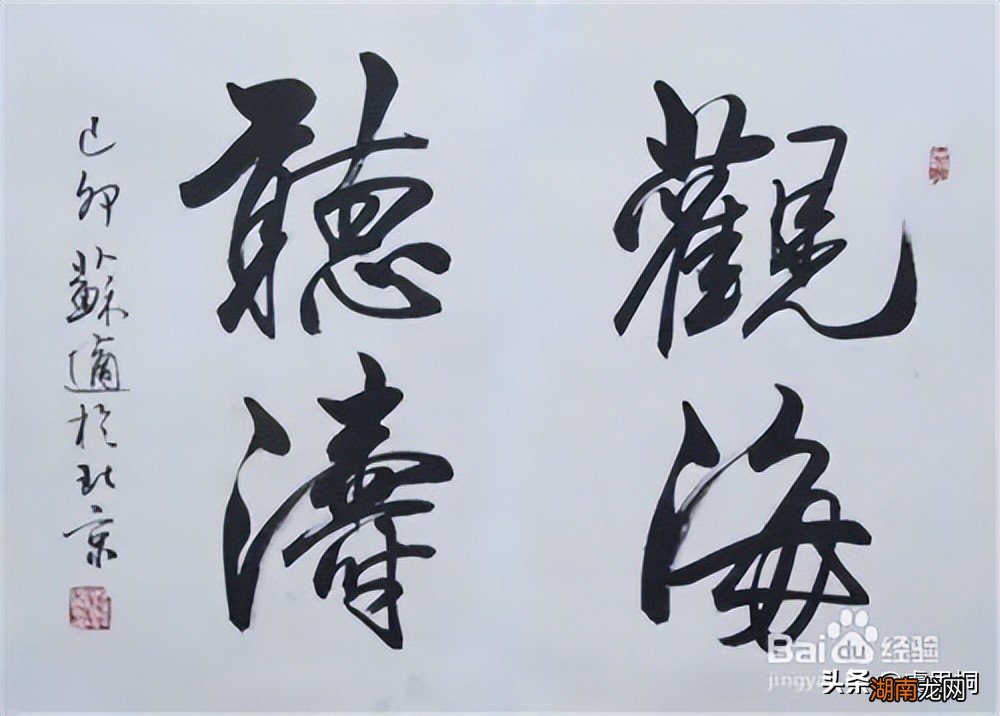 觀海
聽濤
己卯蘇適於北京
Baidu经验
jingya
头条
湖南龙网